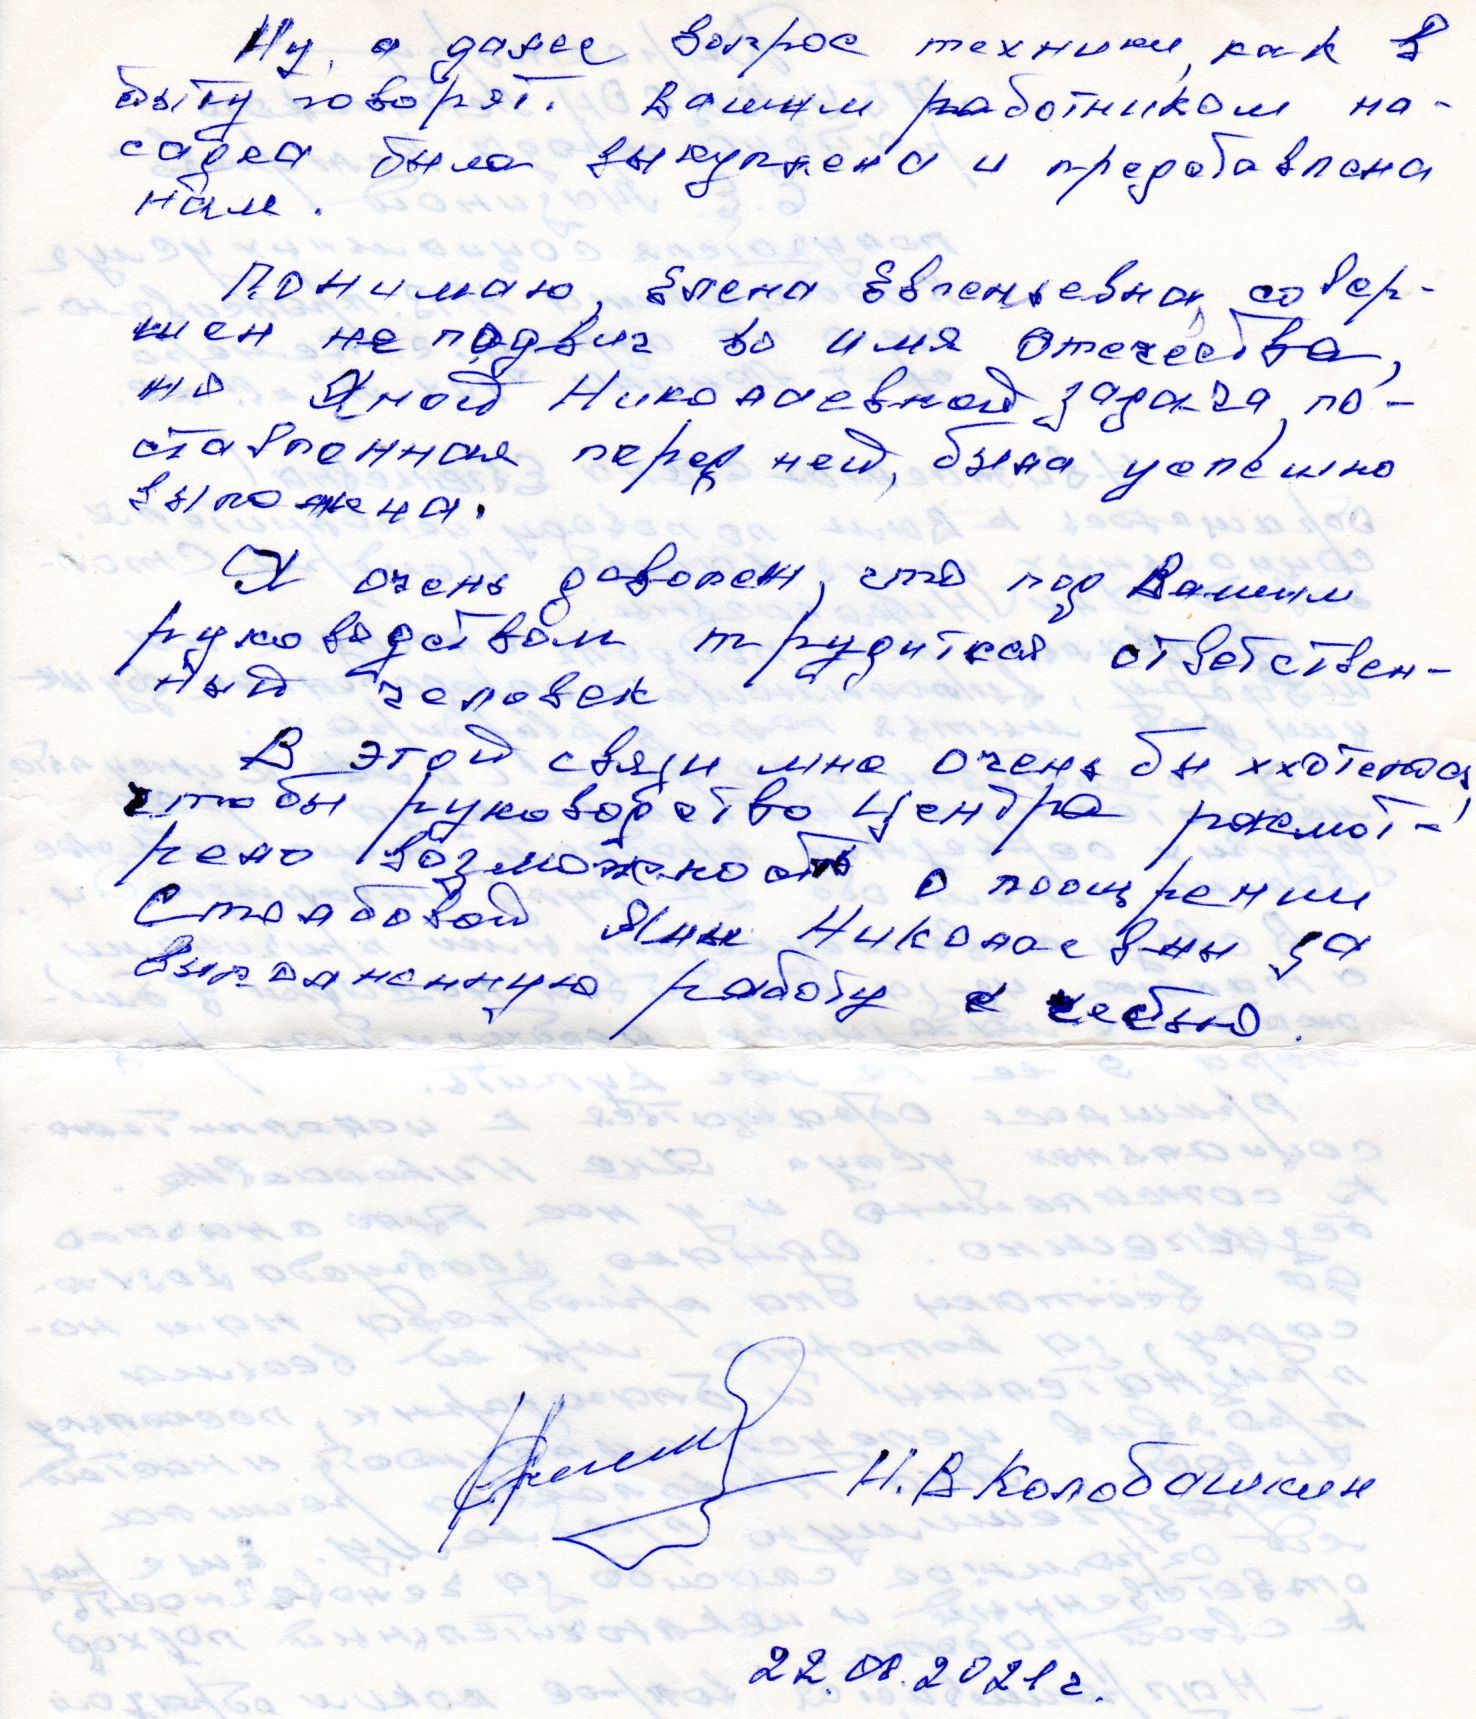 Ну, а далее вопрос техники, как в
быту говорят. Вашим работником на-
садка была выкуплена и предоставлена
нам.
Понимаю, Елена Евгеньевна, совер-
шен не подвиг во имя Отечества,
но Яной Николаевной задача, по-
ставленная перед ней, была успешно
выполнена.
Я очень доволен, что под Вашим
руководством трудится ответствен-
ный человек
В этой связи мне очень бы ххотелось
чтобы руководство Центра рассмот-
рело возможность о поощрении
Столбовой Яны Николаевны за
выполненную работу с честью.
Н.В Колобашкин
22.08.2021 г.